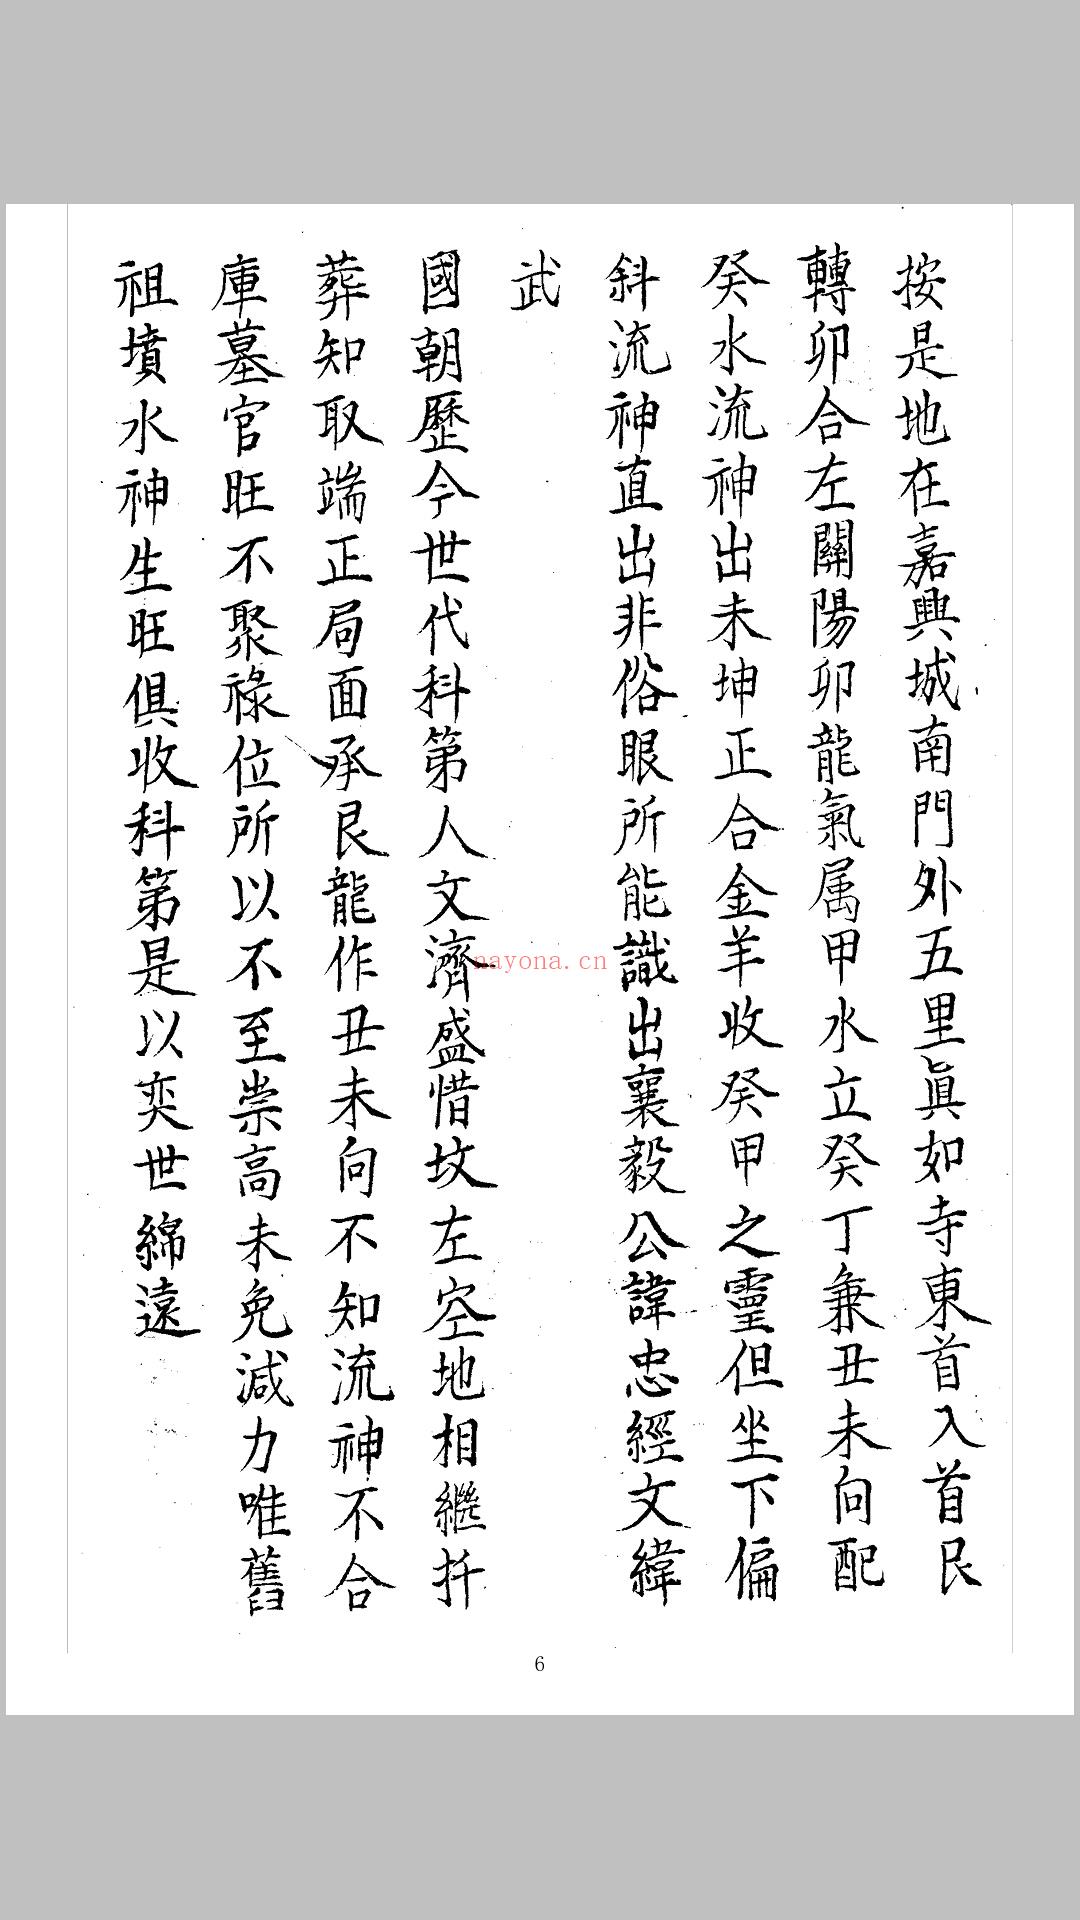 按是地在嘉興城南門外五里眞如寺東首入首艮
轉卯合左關陽卯龍氣属甲水立癸丁兼丑未向配
癸水流神出未坤正合金羊收癸甲之靈但坐下偏
斜流神直出非俗眼所能識出襄毅公諱忠經文緯
武
國朝歷今世代科第人文濟盛惜坟左空地相繼扦
葬知取端正局面承艮龍作丑未向不知流神不合
庫墓官旺不聚祿位所以不至崇高未免減力唯舊
祖墳水神生旺俱收科第是以奕世綿遠
nayona.cn
6